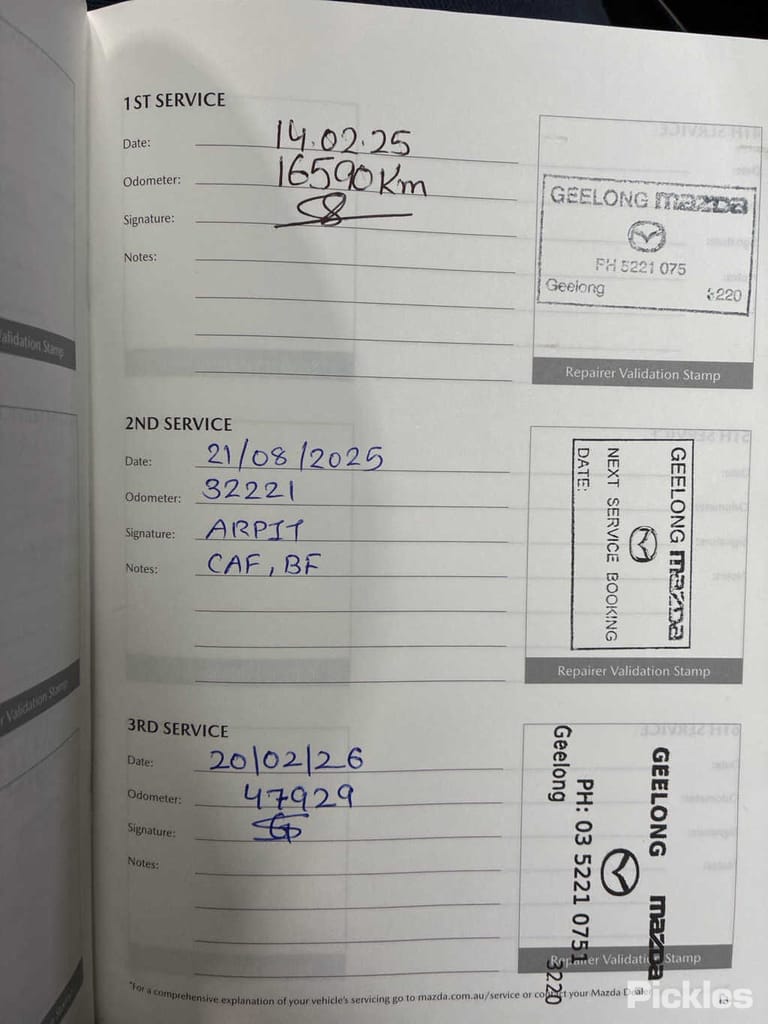 1ST SERVICE
Date: 14.02.25
Odometer: 16590 Km
Signature:
Notes:
GEELONG mazda
PH 5221 075
Geelong 3220
Repairer Validation Stamp
2ND SERVICE
Date: 21/08/2025
Odometer: 32221
Signature: ARPIT
Notes: CAF, BF
GEELONG mazda
NEXT SERVICE BOOKING
DATE:
Repairer Validation Stamp
3RD SERVICE
Date: 20/02/26
Odometer: 47929
Signature:
Notes:
GEELONG mazda
PH: 03 5221 0751
Geelong 3220
Repairer Validation Stamp
*For a comprehensive explanation of your vehicle's servicing go to mazda.com.au/service or contact your Mazda Dealer
Pickles
alidation Stamp
r Validation Stamp